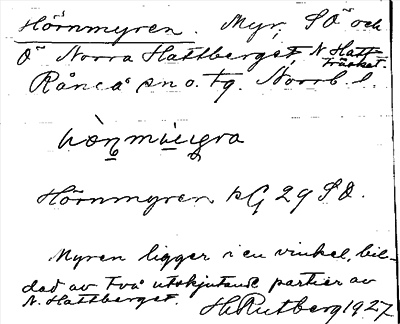 Hörnmyren. Myr, SÖ och
Ö Norra Hattberget, N. Hatt-
träsket.
Råneå sn o. tg. Norrb. l.
Hörnmyren kG 29 SÖ.
Myren ligger i en vinkel, bil-
dad av två utskjutande partier av
N. Hattberget.
H. Rutberg 1927